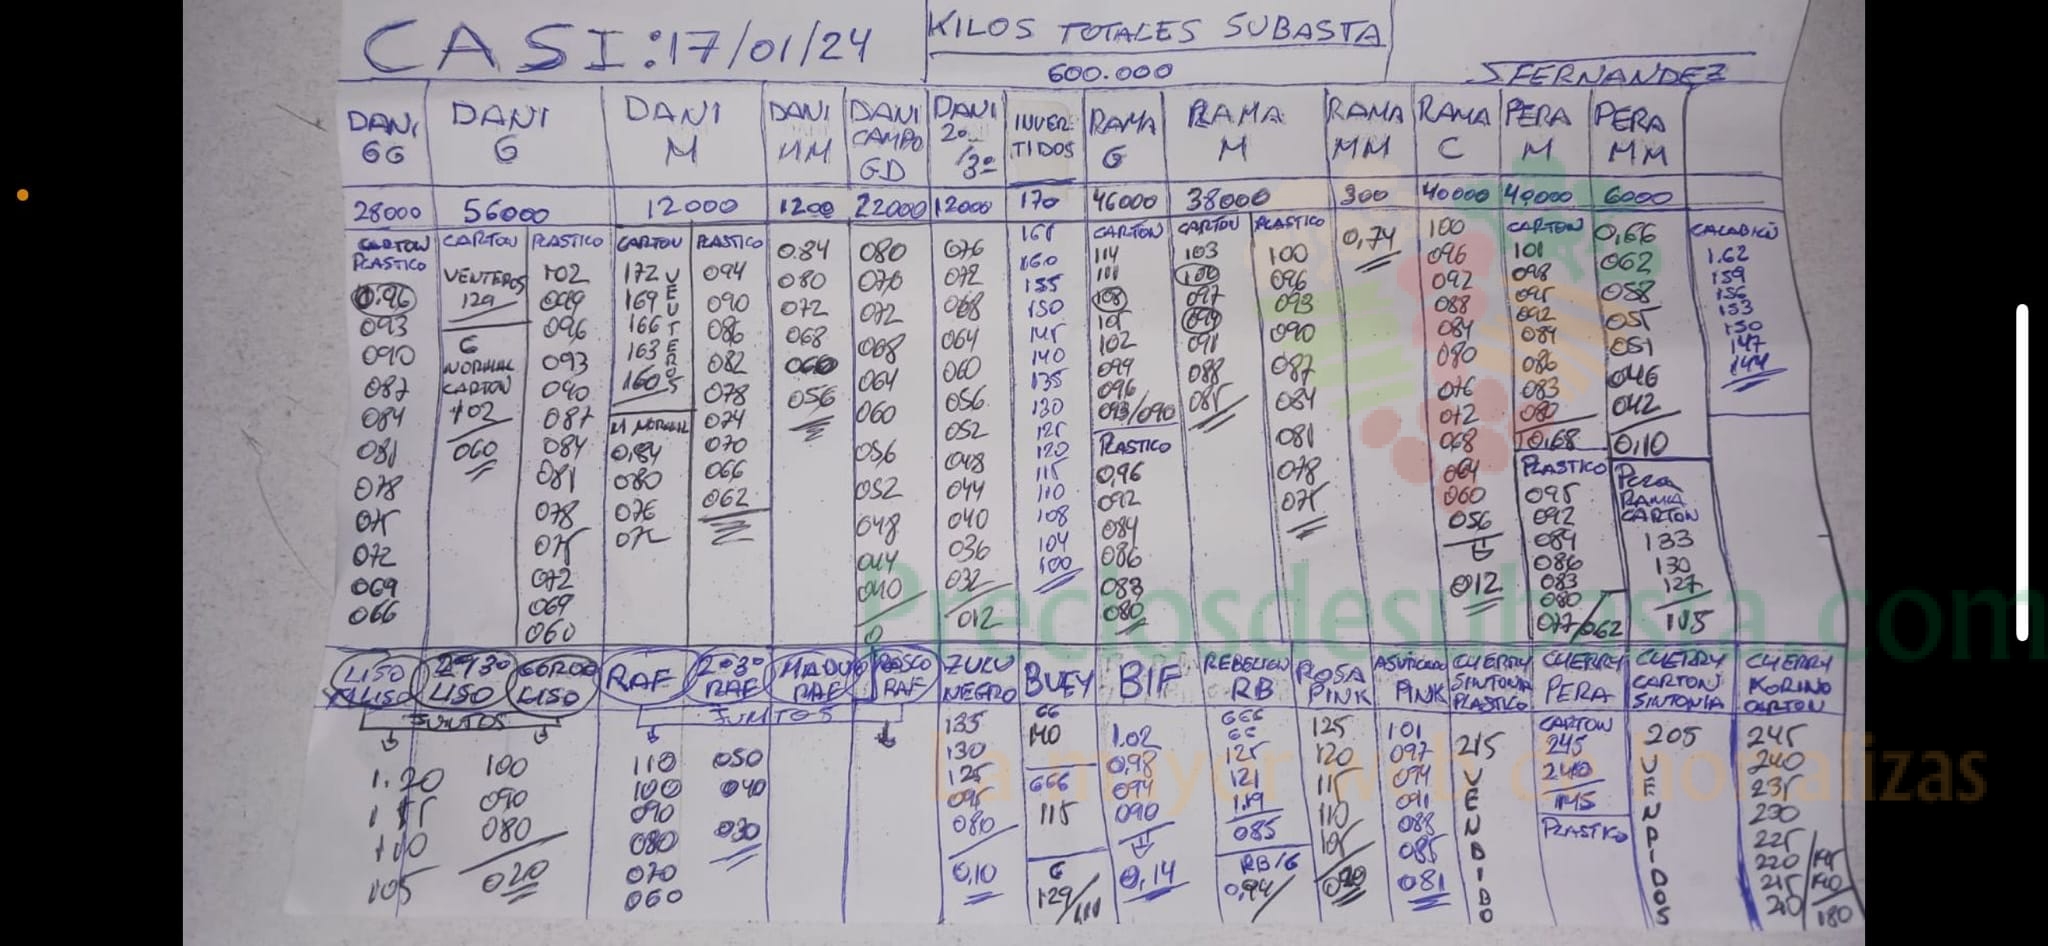 CASI: 17/01/24
KILOS TOTALES SUBASTA
600.000
SFERNANDEZ
DANI GG
28000
CARTON
PLASTICO
0.96
093
090
087
084
081
078
075
072
069
066
DANI G
56000
CARTON
VENTEROS
129
G
NORMAL
CARTON
102
060
PLASTICO
102
099
096
093
090
087
084
081
078
075
072
069
060
DANI M
12000
CARTON
172
169
166
163
160
VENTEROS
M NORMAL
0,84
080
076
072
PLASTICO
094
090
086
082
078
074
070
066
062
DANI MM
1200
0.84
080
072
068
060
056
DANI CAMPO GD
22000
080
076
072
068
064
060
056
052
048
044
040
0
DANI 2º/3º
12000
076
072
068
064
060
056
052
048
044
040
036
032
012
INVERTIDOS
170
165
160
155
150
145
140
135
130
125
120
115
110
108
104
100
RAMA G
46000
CARTON
114
111
108
105
102
099
096
093/090
PLASTICO
0,96
092
086
083
080
RAMA M
38000
CARTON
103
100
097
094
091
088
085
PLASTICO
100
096
093
090
087
084
081
078
075
RAMA MM
300
0,74
RAMA C
40000
100
096
092
088
084
080
076
072
068
064
060
056
012
PERA M
40000
CARTON
101
098
095
092
086
083
080
0,68
PLASTICO
095
092
089
086
083
080
077/062
PERA MM
6000
0,66
062
058
055
051
046
042
0,10
PERA
RAMA
CARTON
133
130
127
115
CALABICÍN
1.62
159
156
153
150
147
144
LISO
2º y 3º LISO
GORDO LISO
JUNTOS
1.20
115
110
105
100
090
080
020
RAF
2º 3º RAF
MADURO RAF
ROSCO RAF
JUNTOS
110
100
090
080
070
060
050
040
030
ZULU NEGRO
135
130
125
095
080
0,10
BUEY
GG
140
GGG
115
G
129/110
BIF
1.02
0,98
094
090
0,14
REBELION RB
GGG
GG
125
121
1.19
085
RB/G
0,94
ROSA PINK
125
120
115
110
105
090
ASURCADO PINK
101
097
094
091
088
085
081
CHERRY SINTONIA PLASTICO
215
VENDIDO
CHERRY PERA
CARTON
245
240
145
PLASTICO
CHERRY CARTON SINTONIA
205
VENDIDOS
CHERRY KORINO CARTON
245
240
235
230
225
220
215
210
195
190
180
Preciosdesubasta.com
La mayor web de hortalizas